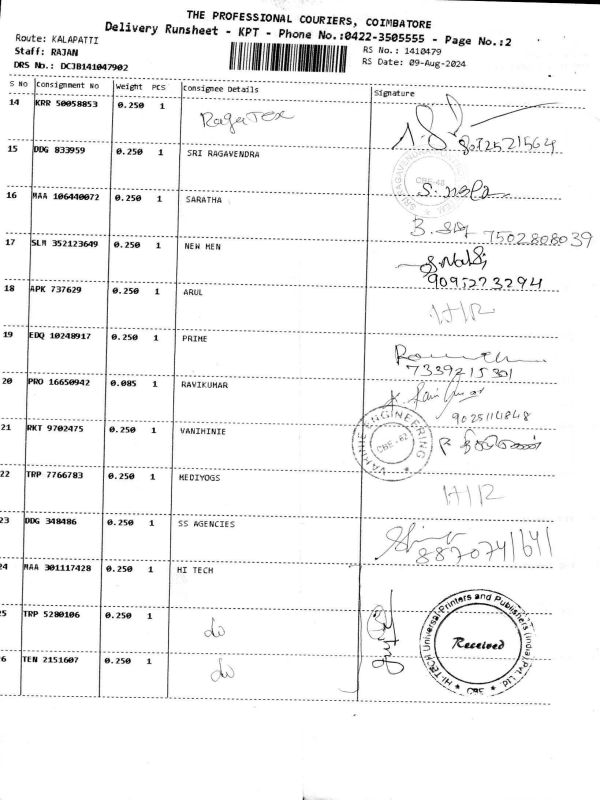 THE PROFESSIONAL COURIERS, COIMBATORE
Delivery Runsheet - KPT - Phone No.:0422-3505555 - Page No.:2
Route: KALAPATTI
RS No.: 1410479
Staff: RAJAN
RS Date: 09-Aug-2024
DRS No.: DCJB141047902
S No Consignment No Weight PCS Consignee Details Signature
14 KRR 50058853 0.250 1 RagaTex
15 DDG 833959 0.250 1 SRI RAGAVENDRA
16 MAA 106440072 0.250 1 SARATHA
7502808039
17 SLM 352123649 0.250 1 NEW MEN
9095273294
18 APK 737629 0.250 1 ARUL
19 EDQ 10248917 0.250 1 PRIME
7339215301
20 PRO 16650942 0.085 1 RAVIKUMAR
9025114848
21 RKT 9702475 0.250 1 VANIHINIE
VAHINIE ENGINEERING
CBE-62
22 TRP 7766783 0.250 1 MEDIYOGS
23 DDG 348486 0.250 1 SS AGENCIES
24 MAA 301117428 0.250 1 HI TECH
25 TRP 5280106 0.250 1 do
26 TEN 2151607 0.250 1 do
HI-TECH Universal Printers and Publishers (India) Pvt. Ltd.
Received
CBE